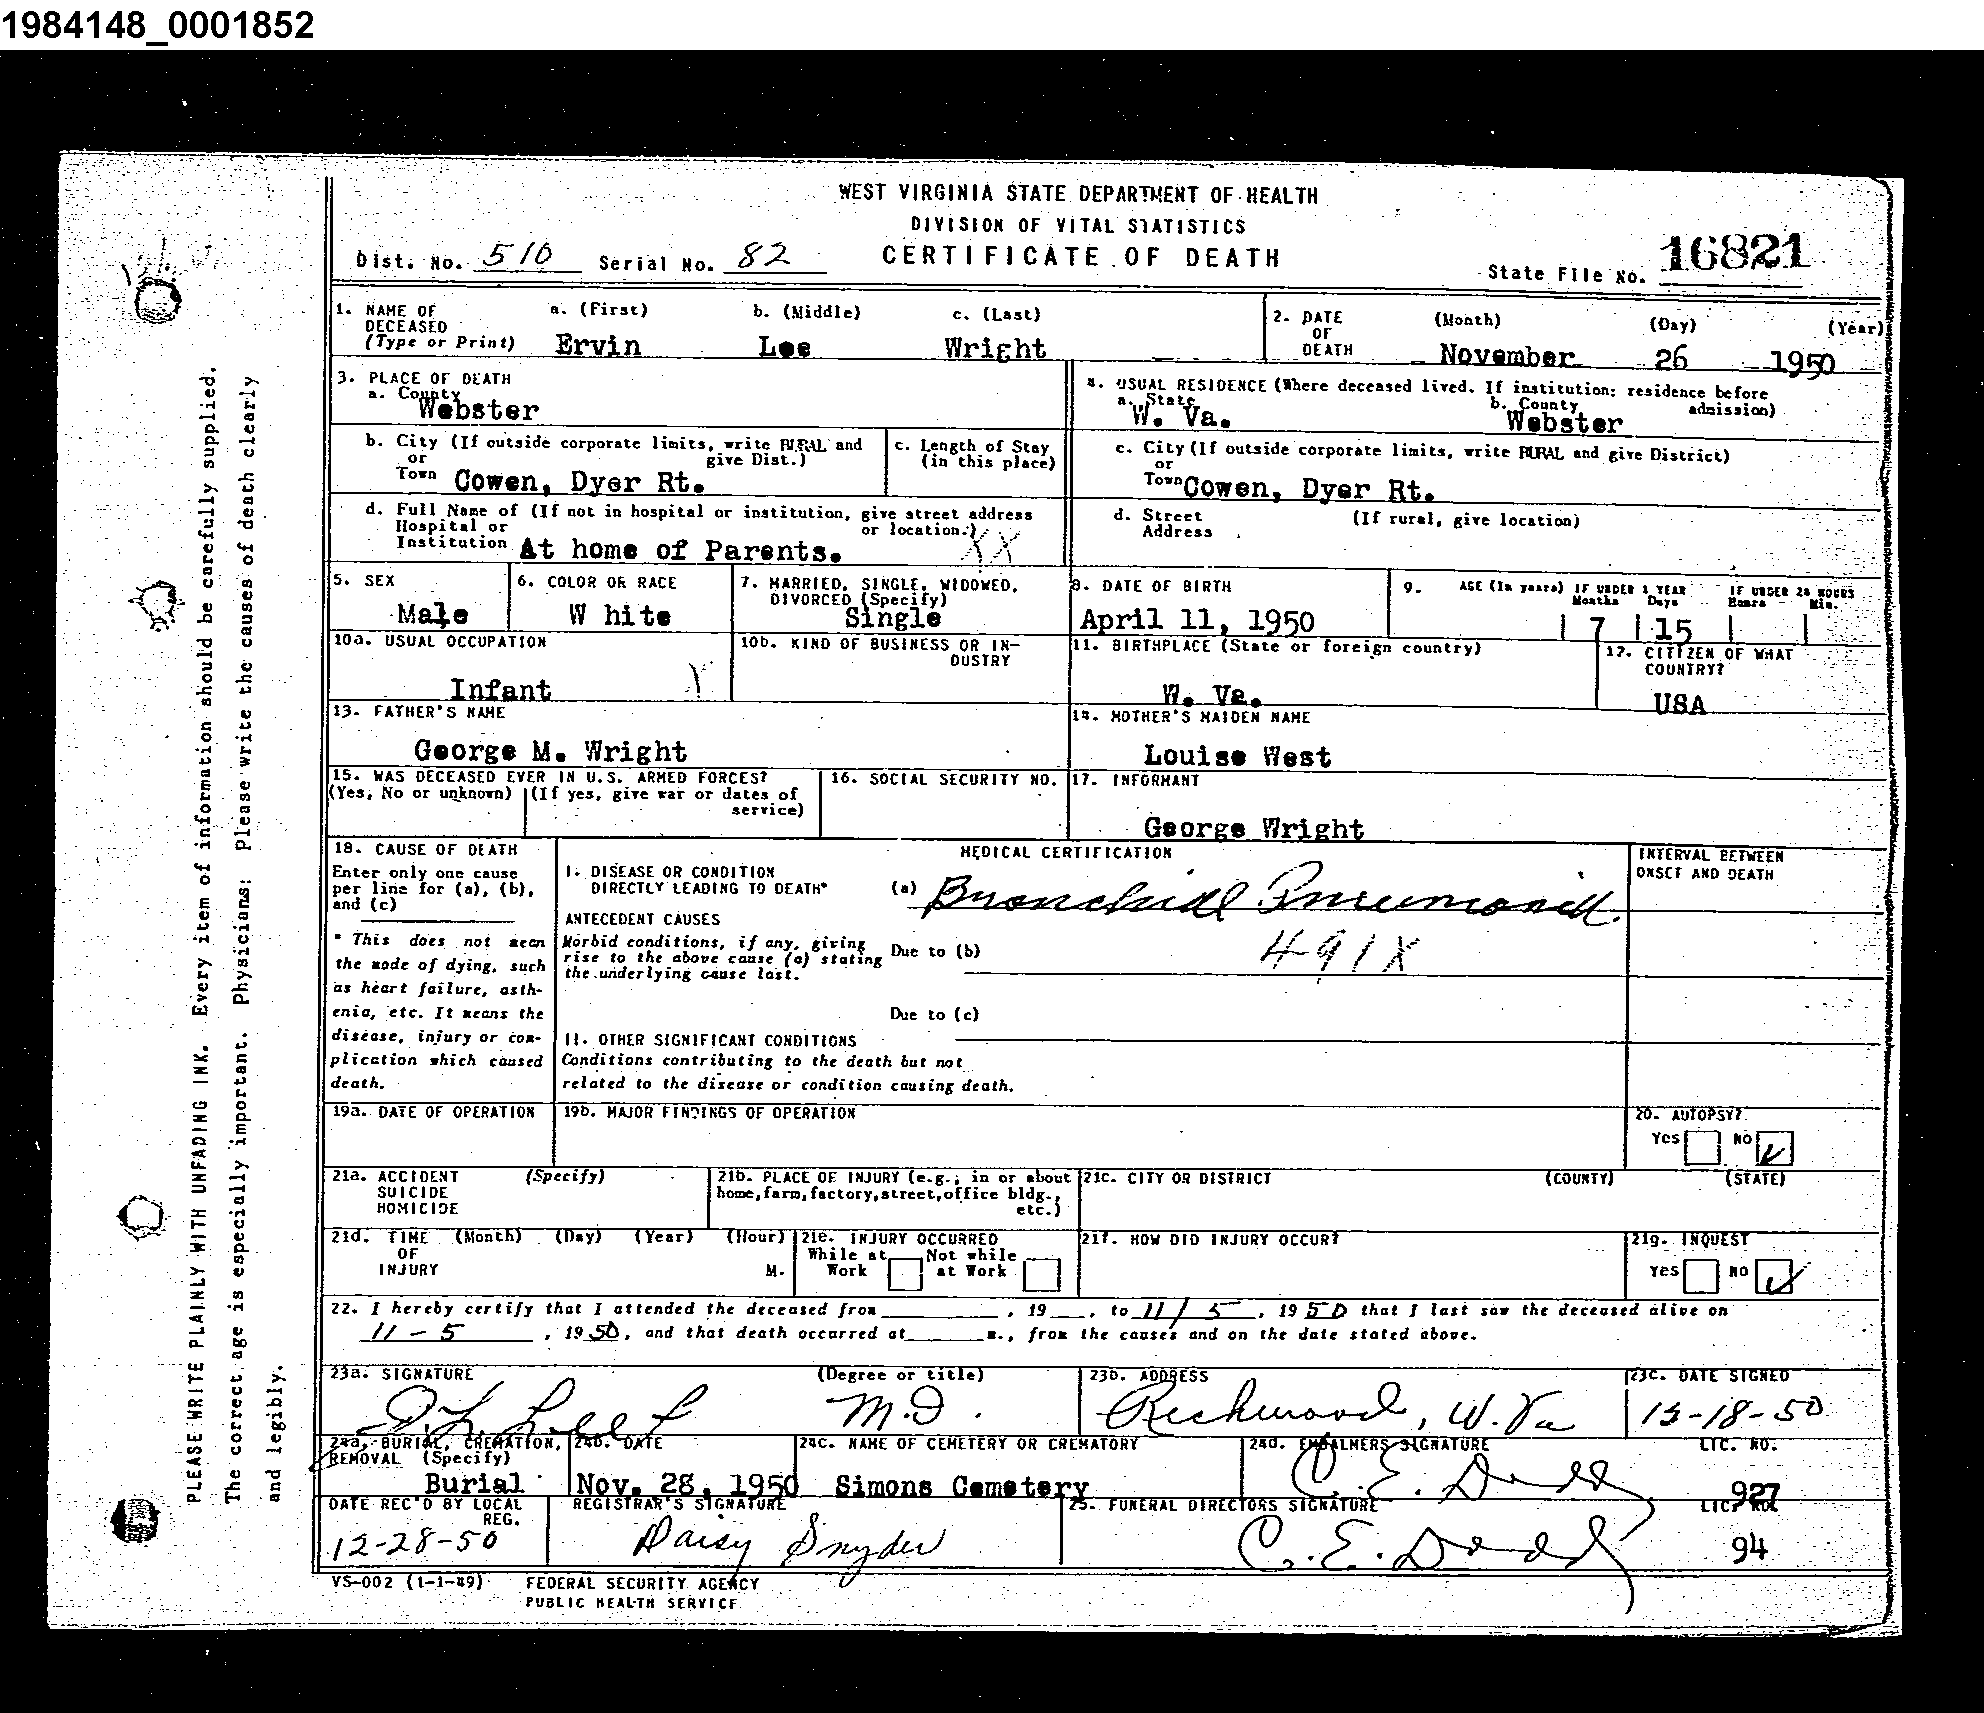 1984148_0001852
WEST VIRGINIA STATE DEPARTMENT OF HEALTH
DIVISION OF VITAL STATISTICS
Dist. No. 510 Serial No. 82 CERTIFICATE OF DEATH
State File No. 16821
1. NAME OF DECEASED (Type or Print) a. (First) b. (Middle) c. (Last)
Ervin Lee Wright
2. DATE OF DEATH (Month) (Day) (Year)
November 26 1950
3. PLACE OF DEATH
a. County
Webster
4. USUAL RESIDENCE (Where deceased lived. If institution: residence before admission)
a. State b. County
W. Va. Webster
b. City (If outside corporate limits, write RURAL and give Dist.)
or
Town Cowen, Dyer Rt.
c. Length of Stay (in this place)
c. City (If outside corporate limits, write RURAL and give District)
or
Town Cowen, Dyer Rt.
d. Full Name of (If not in hospital or institution, give street address or location.)
Hospital or
Institution At home of Parents. XX
d. Street Address (If rural, give location)
5. SEX
Male
6. COLOR OR RACE
W hite
7. MARRIED, SINGLE, WIDOWED, DIVORCED (Specify)
Single
8. DATE OF BIRTH
April 11, 1950
9. AGE (In years) IF UNDER 1 YEAR IF UNDER 24 HOURS
Months Days Hours Min.
7 15
10a. USUAL OCCUPATION
Infant
10b. KIND OF BUSINESS OR IN-
DUSTRY
11. BIRTHPLACE (State or foreign country)
W. Va.
12. CITIZEN OF WHAT COUNTRY?
USA
13. FATHER'S NAME
George M. Wright
14. MOTHER'S MAIDEN NAME
Louise West
15. WAS DECEASED EVER IN U.S. ARMED FORCES?
(Yes, No or unknown) (If yes, give war or dates of service)
16. SOCIAL SECURITY NO.
17. INFORMANT
George Wright
18. CAUSE OF DEATH
Enter only one cause
per line for (a), (b),
and (c)
* This does not mean
the mode of dying, such
as heart failure, asth-
enia, etc. It means the
disease, injury or com-
plication which caused
death.
MEDICAL CERTIFICATION
I. DISEASE OR CONDITION
DIRECTLY LEADING TO DEATH* (a) Bronchial Pneumonia.
ANTECEDENT CAUSES
Morbid conditions, if any, giving
rise to the above cause (a) stating
the underlying cause last.
Due to (b) 491X
Due to (c)
II. OTHER SIGNIFICANT CONDITIONS
Conditions contributing to the death but not
related to the disease or condition causing death.
INTERVAL BETWEEN
ONSET AND DEATH
19a. DATE OF OPERATION
19b. MAJOR FINDINGS OF OPERATION
20. AUTOPSY?
Yes No ✓
21a. ACCIDENT (Specify)
SUICIDE
HOMICIDE
21b. PLACE OF INJURY (e.g., in or about
home, farm, factory, street, office bldg.,
etc.)
21c. CITY OR DISTRICT (COUNTY) (STATE)
21d. TIME (Month) (Day) (Year) (Hour)
OF
INJURY M.
21e. INJURY OCCURRED
While at Work Not while at Work
21f. HOW DID INJURY OCCUR?
21g. INQUEST
Yes No ✓
22. I hereby certify that I attended the deceased from , 19 , to 11/5, 1950 that I last saw the deceased alive on
11-5, 1950, and that death occurred at m., from the causes and on the date stated above.
23a. SIGNATURE (Degree or title)
M.D.
23b. ADDRESS
Richwood, W. Va
23c. DATE SIGNED
12-18-50
24a. BURIAL, CREMATION,
REMOVAL (Specify)
Burial
24b. DATE
Nov. 28, 1950
24c. NAME OF CEMETERY OR CREMATORY
Simons Cemetery
24d. EMBALMERS SIGNATURE LIC. NO.
C. E. Dodd 927
DATE REC'D BY LOCAL
REG.
12-28-50
REGISTRAR'S SIGNATURE
Daisy Snyder
25. FUNERAL DIRECTORS SIGNATURE LIC. NO.
C. E. Dodd 94
VS-002 (1-1-49) FEDERAL SECURITY AGENCY
PUBLIC HEALTH SERVICE
PLEASE WRITE PLAINLY WITH UNFADING INK. Every item of information should be carefully supplied.
The correct age is especially important. Physicians: Please write the causes of death clearly
and legibly.